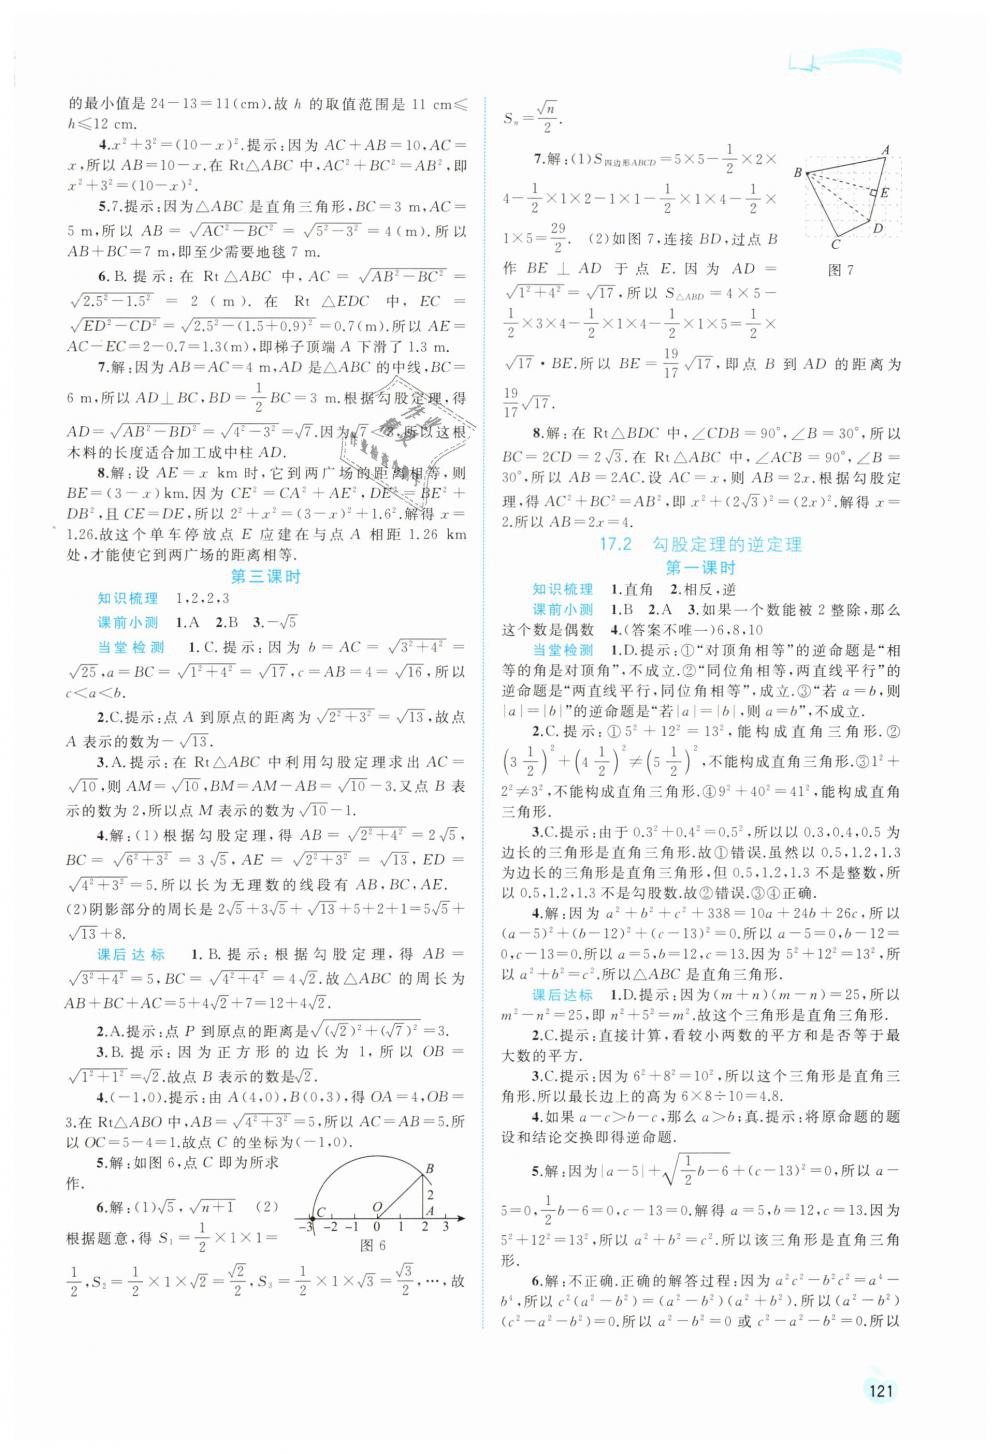 的最小值是 24－13＝11(cm).故 h 的取值范围是 11 cm≤
h≤12 cm.
4.x²＋3²＝(10－x)².提示:因为 AC＋AB＝10,AC＝
x,所以 AB＝10－x.在 Rt△ABC 中,AC²＋BC²＝AB²,即
x²＋3²＝(10－x)².
5.7.提示:因为△ABC 是直角三角形,BC＝3 m,AC＝
5 m,所以 AB ＝ √(AC²－BC²) ＝ √(5²－3²) ＝4(m).所以
AB＋BC＝7 m,即至少需要地毯 7 m.
6.B.提示:在 Rt△ABC 中,AC＝ √(AB²－BC²) ＝
√(2.5²－1.5²) ＝ 2 (m).在 Rt△EDC 中,EC＝
√(ED²－CD²)＝√(2.5²－(1.5＋0.9)²)＝0.7(m).所以 AE＝
AC－EC＝2－0.7＝1.3(m),即梯子顶端 A 下滑了 1.3 m.
7.解:因为 AB＝AC＝4 m,AD 是△ABC 的中线,BC＝
6 m,所以 AD⊥BC,BD＝1/2 BC＝3 m.根据勾股定理,得
AD＝√(AB²－BD²)＝√(4²－3²)＝√7.因为√7＜3,所以这根
木料的长度适合加工成中柱 AD.
8.解:设 AE＝x km 时,它到两广场的距离相等,则
BE＝(3－x)km.因为 CE²＝CA²＋AE²,DE²＝BE²＋
DB²,且 CE＝DE,所以 2²＋x²＝(3－x)²＋1.6².解得 x＝
1.26.故这个单车停放点 E 应建在与点 A 相距 1.26 km
处,才能使它到两广场的距离相等.
第三课时
知识梳理 1,2,2,3
课前小测 1.A 2.B 3.－√5
当堂检测 1.C.提示:因为 b＝AC＝ √(3²＋4²)＝
√25,a＝BC＝√(1²＋4²)＝√17,c＝AB＝4＝√16,所以
c＜a＜b.
2.C.提示:点 A 到原点的距离为 √(2²＋3²)＝√13,故点
A 表示的数为－√13.
3.A.提示:在 Rt△ABC 中利用勾股定理求出 AC＝
√10,则 AM＝√10,BM＝AM－AB＝√10－3.又点 B 表
示的数为 2,所以点 M 表示的数为√10－1.
4.解:(1)根据勾股定理,得 AB＝ √(2²＋4²)＝2√5,
BC＝ √(6²＋3²)＝3√5,AE＝ √(2²＋3²)＝√13,ED＝
√(4²＋3²)＝5.所以长为无理数的线段有 AB,BC,AE.
(2)阴影部分的周长是 2√5＋3√5＋√13＋5＋2＋1＝5√5＋
√13＋8.
课后达标 1.B.提示:根据勾股定理,得 AB＝
√(3²＋4²)＝5,BC＝√(4²＋4²)＝4√2.故△ABC 的周长为
AB＋BC＋AC＝5＋4√2＋7＝12＋4√2.
2.A.提示:点 P 到原点的距离是√((√2)²＋(√7)²)＝3.
3.B.提示:因为正方形的边长为 1,所以 OB＝
√(1²＋1²)＝√2.故点 B 表示的数是√2.
4.(－1,0).提示:由 A(4,0),B(0,3),得 OA＝4,OB＝
3.在 Rt△ABO 中,AB＝√(4²＋3²)＝5,所以 AC＝AB＝5.所
以 OC＝5－4＝1.故点 C 的坐标为(－1,0).
5.解:如图 6,点 C 即为所求
作.
6.解:(1)√5,√(n＋1) (2)
根据题意,得 S₁＝1/2×1×1＝
B
2
C O A
-3 -2 -1 0 1 2 3
图 6
1/2,S₂＝1/2×1×√2＝√2/2,S₃＝1/2×1×√3＝√3/2,…,故
Sₙ＝√n/2.
7.解:(1)S四边形ABCD＝5×5－1/2×2×
4－1/2×1×2－1×1－1/2×1×4－1/2×
1×5＝29/2. (2)如图 7,连接 BD,过点 B
作 BE⊥AD 于点 E.因为 AD＝
√(1²＋4²)＝√17,所以 S△ABD＝4×5－
A
B
E
D
C
图 7
1/2×3×4－1/2×1×4－1/2×1×5＝1/2×
√17·BE.所以 BE＝19/17√17,即点 B 到 AD 的距离为
19/17√17.
8.解:在 Rt△BDC 中,∠CDB＝90°,∠B＝30°,所以
BC＝2CD＝2√3.在 Rt△ABC 中,∠ACB＝90°,∠B＝
30°,所以 AB＝2AC.设 AC＝x,则 AB＝2x.根据勾股定
理,得 AC²＋BC²＝AB²,即 x²＋(2√3)²＝(2x)².解得 x＝
2.所以 AB＝2x＝4.
17.2 勾股定理的逆定理
第一课时
知识梳理 1.直角 2.相反,逆
课前小测 1.B 2.A 3.如果一个数能被 2 整除,那么
这个数是偶数 4.(答案不唯一)6,8,10
当堂检测 1.D.提示:①“对顶角相等”的逆命题是“相
等的角是对顶角”,不成立.②“同位角相等,两直线平行”的
逆命题是“两直线平行,同位角相等”,成立.③“若 a＝b,则
|a|＝|b|”的逆命题是“若|a|＝|b|,则 a＝b”,不成立.
2.C.提示:①5²＋12²＝13²,能构成直角三角形.②
(3 1/2)²＋(4 1/2)²≠(5 1/2)²,不能构成直角三角形.③1²＋
2²≠3²,不能构成直角三角形.④9²＋40²＝41²,能构成直角
三角形.
3.C.提示:由于 0.3²＋0.4²＝0.5²,所以以 0.3,0.4,0.5 为
边长的三角形是直角三角形.故①错误.虽然以 0.5,1.2,1.3
为边长的三角形是直角三角形,但 0.5,1.2,1.3 不是整数,所
以 0.5,1.2,1.3 不是勾股数.故②错误.③④正确.
4.解:因为 a²＋b²＋c²＋338＝10a＋24b＋26c,所以
(a－5)²＋(b－12)²＋(c－13)²＝0.所以 a－5＝0,b－12＝
0,c－13＝0.所以 a＝5,b＝12,c＝13.因为 5²＋12²＝13²,所
以 a²＋b²＝c².所以△ABC 是直角三角形.
课后达标 1.D.提示:因为(m＋n)(m－n)＝25,所以
m²－n²＝25,即 n²＋5²＝m².故这个三角形是直角三角形.
2.C.提示:直接计算,看较小两数的平方和是否等于最
大数的平方.
3.C.提示:因为 6²＋8²＝10²,所以这个三角形是直角三
角形.所以最长边上的高为 6×8÷10＝4.8.
4.如果 a－c＞b－c,那么 a＞b;真.提示:将原命题的题
设和结论交换即得逆命题.
5.解:因为|a－5|＋√(1/2 b－6)＋(c－13)²＝0,所以 a－
5＝0,1/2 b－6＝0,c－13＝0.解得 a＝5,b＝12,c＝13.因为
5²＋12²＝13²,所以 a²＋b²＝c².所以该三角形是直角三角
形.
6.解:不正确.正确的解答过程:因为 a²c²－b²c²＝a⁴－
b⁴,所以 c²(a²－b²)＝(a²－b²)(a²＋b²).所以(a²－b²)
(c²－a²－b²)＝0.所以 a²－b²＝0 或 c²－a²－b²＝0.所以
121